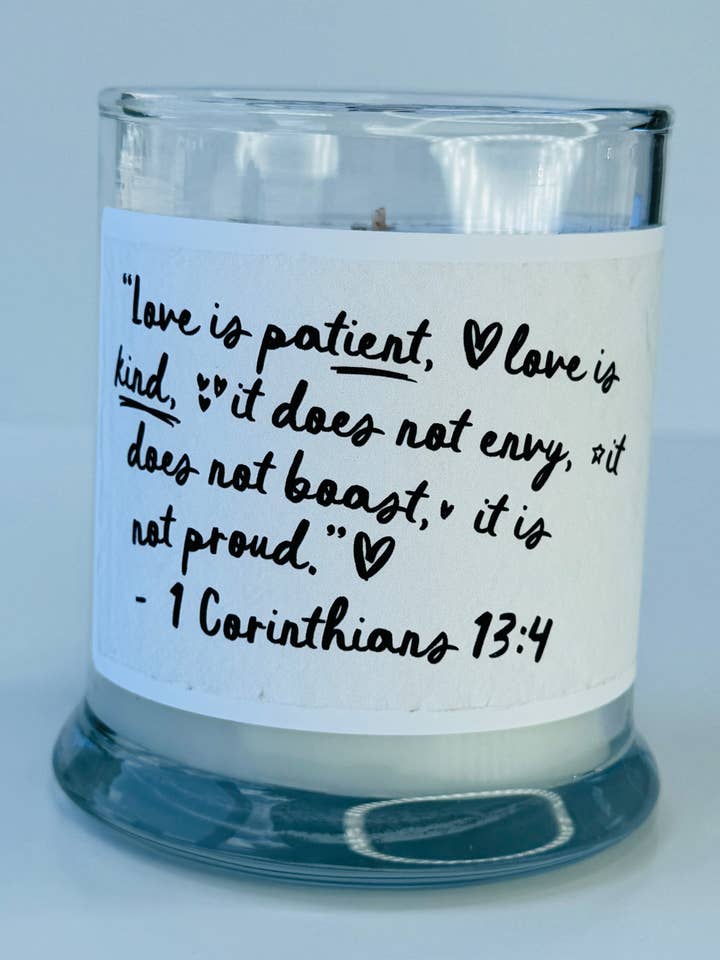 "Love is patient, ♡ love is
kind, it does not envy, ☆it
does not boast, it is
not proud." ♡
- 1 Corinthians 13:4